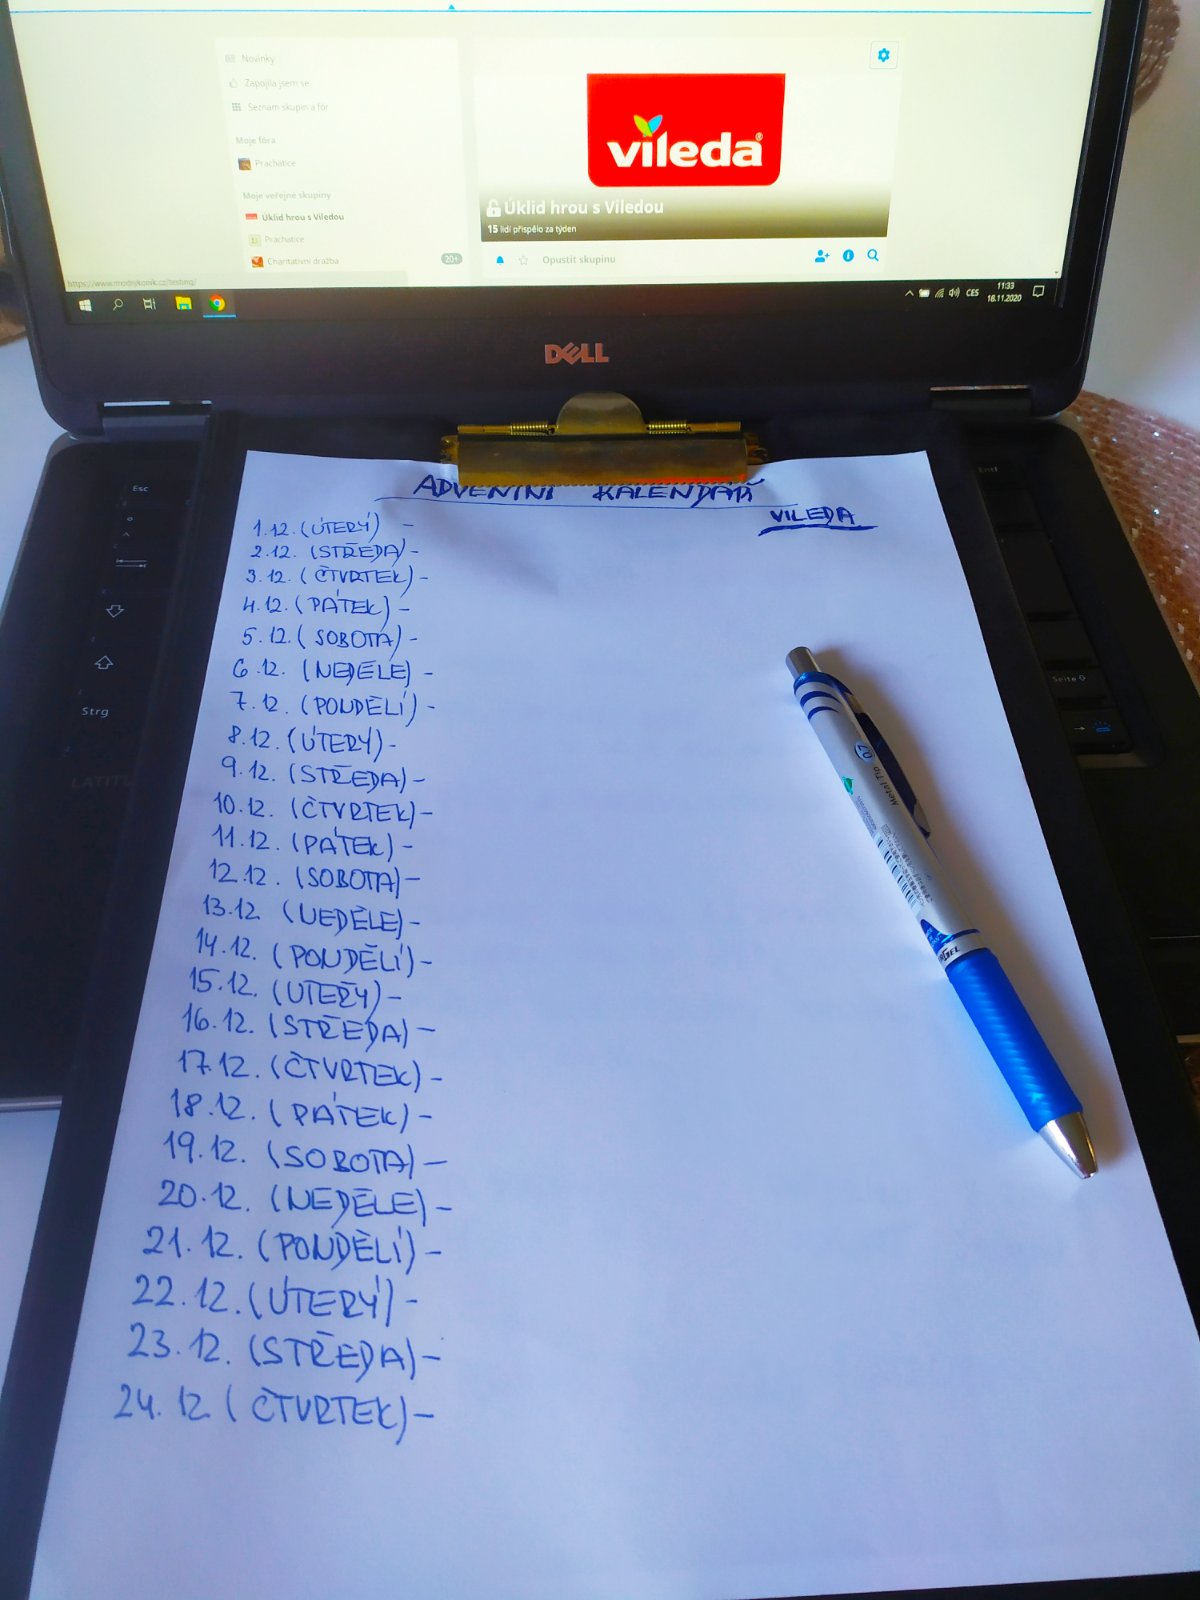 Novinky
Zapojila jsem se
Seznam skupin a fór
Moje fóra
Prachatice
Moje veřejné skupiny
Úklid hrou s Viledou
Prachatice
Charitativní dražba
20+
vileda®
Úklid hrou s Viledou
15 lidí přispělo za týden
Opustit skupinu
https://www.modrykonik.cz/testing/
CES
11:33
18.11.2020
DELL
Esc
Strg
Entf
Seite
ADVENTNÍ KALENDÁŘ
VILEDA
1.12. (ÚTERÝ) -
2.12. (STŘEDA) -
3.12. (ČTVRTEK) -
4.12. (PÁTEK) -
5.12. (SOBOTA) -
6.12. (NEDĚLE) -
7.12. (PONDĚLÍ) -
8.12. (ÚTERÝ) -
9.12. (STŘEDA) -
10.12. (ČTVRTEK) -
11.12. (PÁTEK) -
12.12. (SOBOTA) -
13.12 (NEDĚLE) -
14.12. (PONDĚLÍ) -
15.12. (ÚTERÝ) -
16.12. (STŘEDA) -
17.12. (ČTVRTEK) -
18.12. (PÁTEK) -
19.12. (SOBOTA) -
20.12. (NEDĚLE) -
21.12. (PONDĚLÍ) -
22.12. (ÚTERÝ) -
23.12. (STŘEDA) -
24.12. (ČTVRTEK) -
0.7
Metal Tip